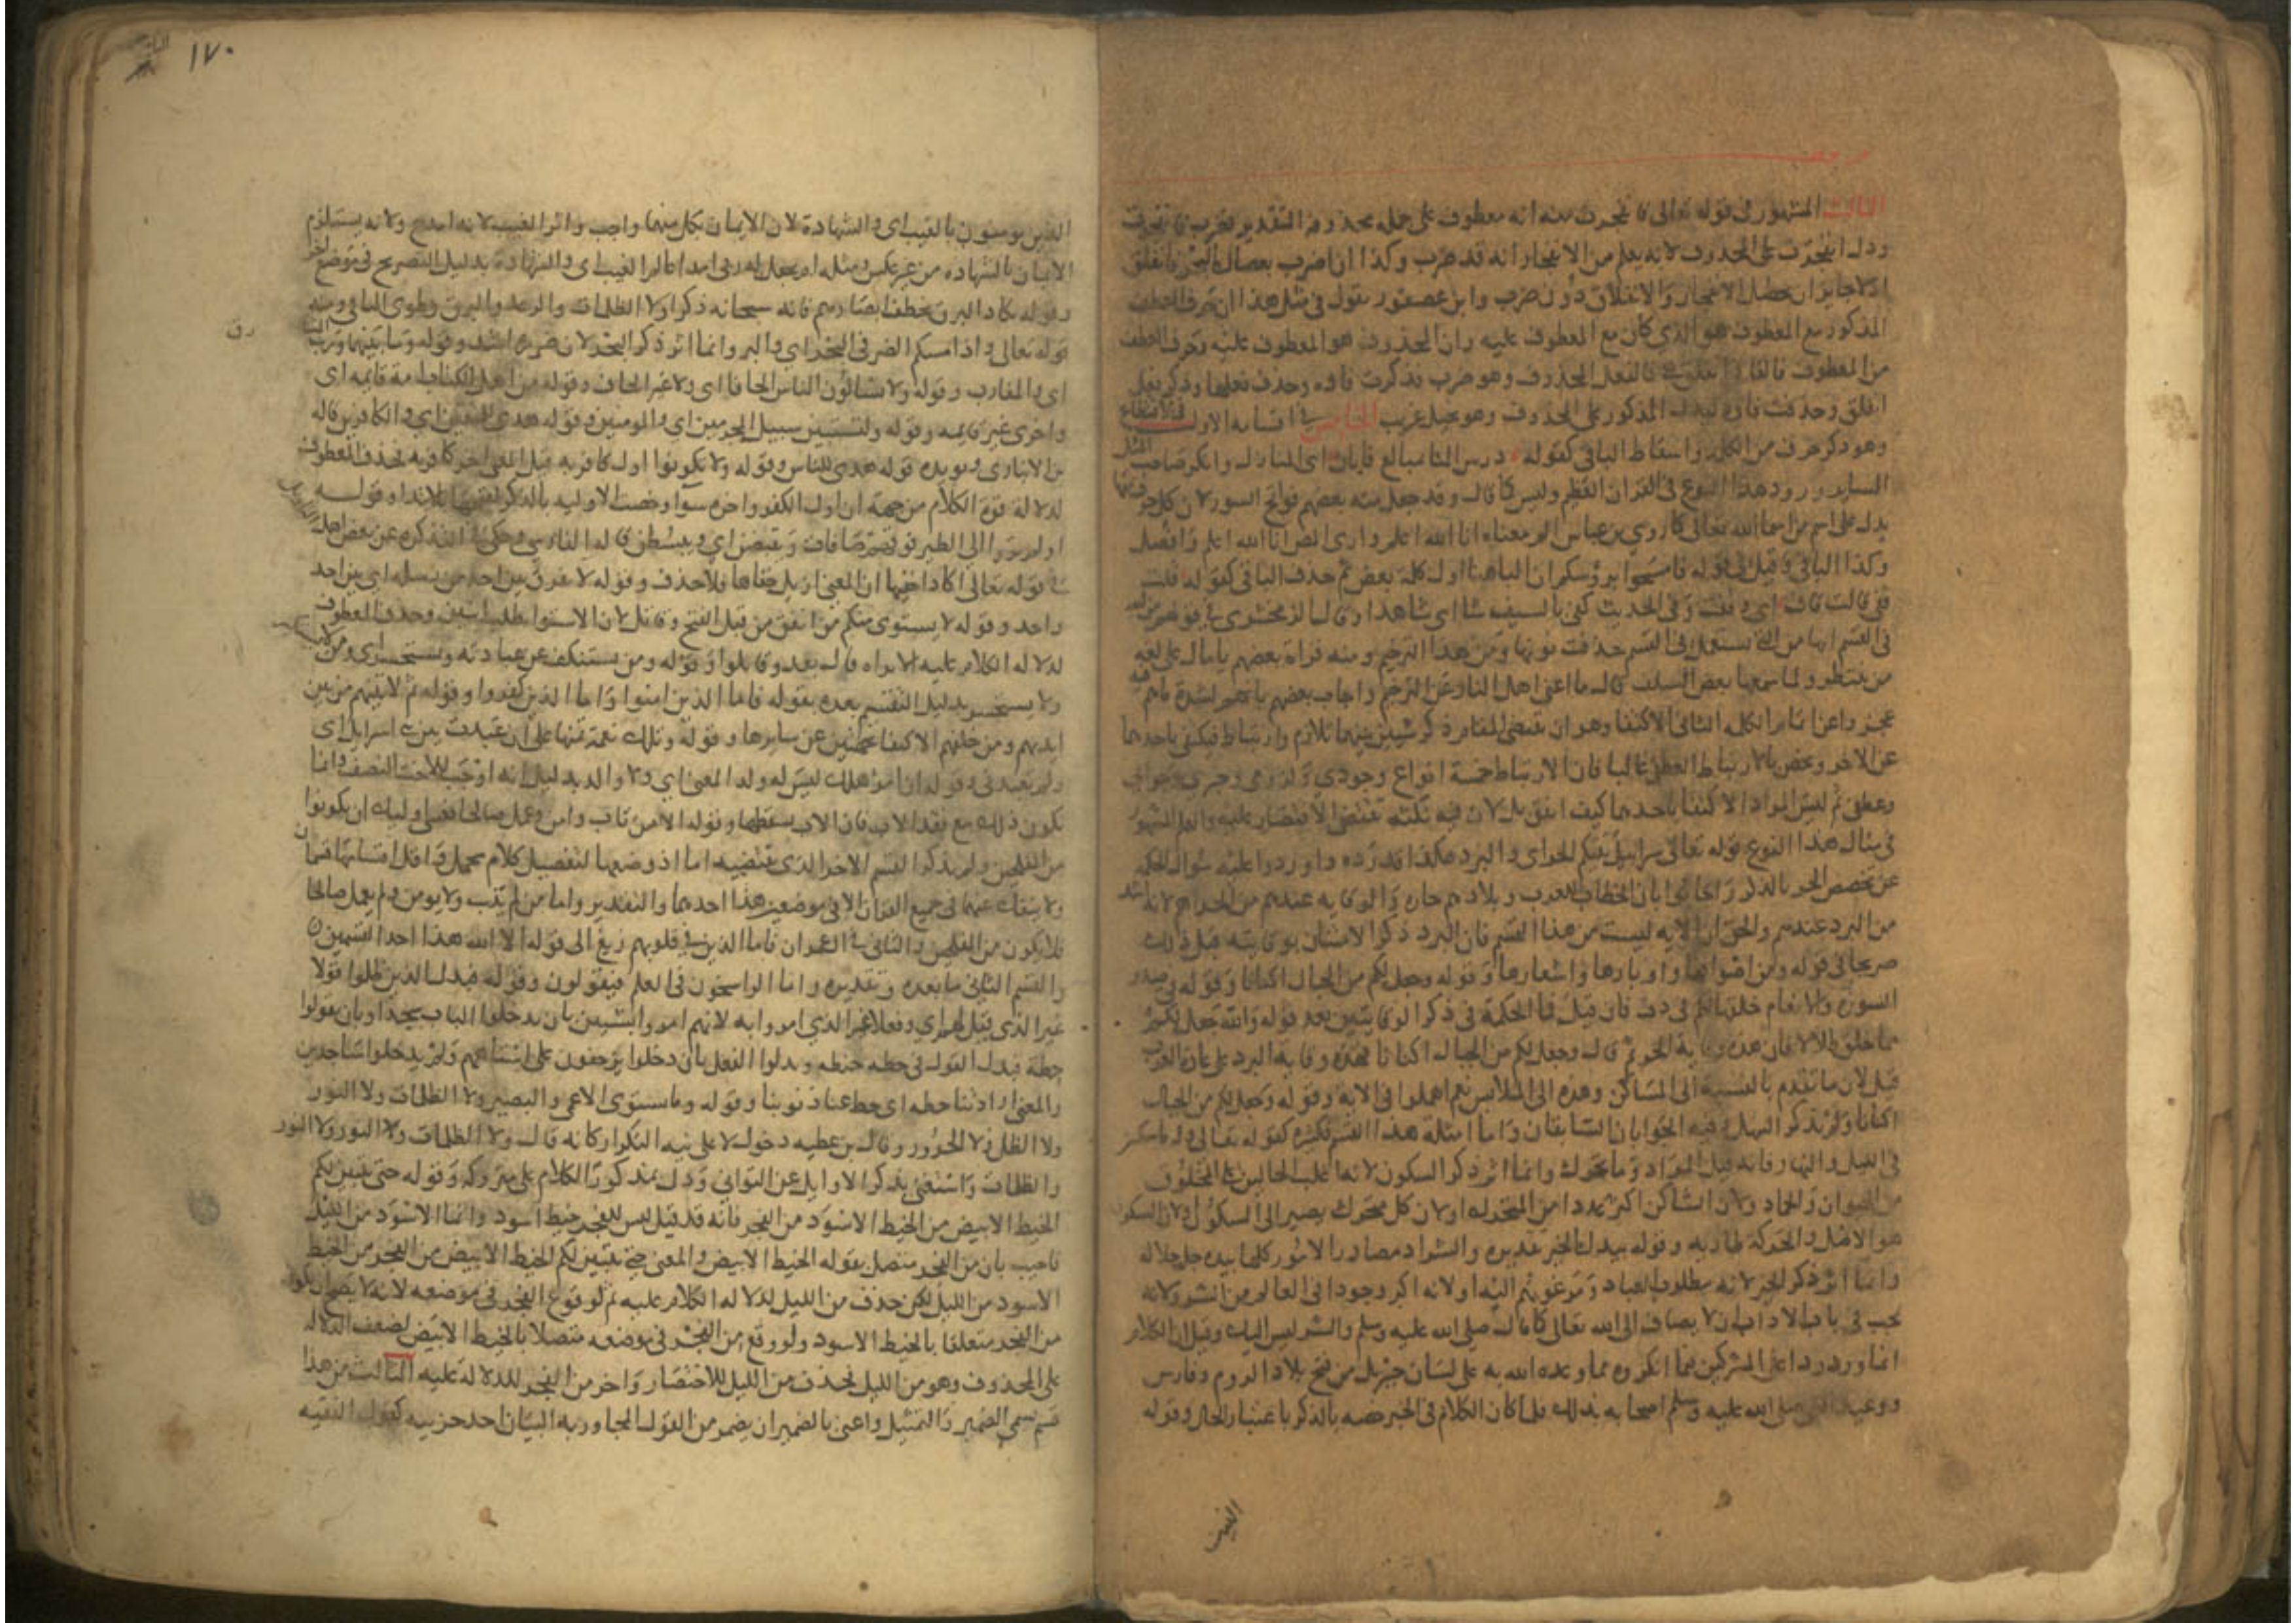 الثالث المشهور في قوله تعالى فانفجرت منه انه معطوف على جمله محذوفه التقدير فضرب فانفجرت
ودل انفجرت على المحذوف لانه يعلم من الانفجار انه قد ضرب وكذا ان اضرب بعصاك البحر فانفلق
اذ لا جايز ان يحصل الانفجار والانفلاق دون ضرب وابن عصفور يقول في مثل هذا ان حرف العطف
المذكور مع المعطوف هو الذي كان مع المعطوف عليه وان المحذوف هو المعطوف عليه وحرف العطف
من المعطوف فالفا في انفلق فالفعل المحذوف وهو ضرب فذكرت فاؤه وحذف فعلها وذكر فعل
انفلق وحذفت فاؤه ليدل المذكور على المحذوف وهو تحيل غريب الخامس في اقسامه الاول الاقتطاع
وهو ذكر حرف من الكلمه واسقاط الباقي كقوله درس المنا بمتالع فابان اي المنازل وانكر صاحب المثل
الساير ورود هذا النوع في القران العظيم وليس كما قال وقد جعل منه بعضهم فواتح السور لان كل حرف منها
يدل على اسم من اسما الله تعالى كما روى بن عباس الم معناه انا الله اعلم وارى المص انا الله اعلم وافصل
وكذا الباقي وقيل في قوله فامسحوا برؤسكم ان الباهنا اول كلمة بعض ثم حذف الباقي كقوله قلت
قفي قالت قاف اي وقفت وفي الحديث كفى بالسيف شا اي شاهدا وقال الزمخشري في قولهم من الله
في القسم انها من التي تستعمل في القسم حذفت نونها ومن هذا الترخيم ومنه قراة بعضهم يا مال على لغه
من ينتظر ولما سمعها بعض السلف قال ما اغنى اهل النار عن الترخيم واجاب بعضهم بانهم لشدة ماهم فيه
عجزوا عن اتمام الكلمه الثاني الاكتفا وهو ان يقتضي المقام ذكر شيئين بينهما تلازم وارتباط فيكتفى باحدهما
عن الاخر ويخص بالارتباط العطفي غالبا فان الارتباط خمسة انواع وجودي ولزومي وخبري وجوابي
وعطفي ثم ليس المراد الاكتفا باحدهما كيف اتفق بل لان فيه نكته تقتضي الاقتصار عليه والعلم المشهور
في مثال هذا النوع قوله تعالى سرابيل تقيكم الحر اي والبرد هكذا قدروه واوردوا عليه سوال الحكمه
عن تخصيص الحر بالذكر واجابوا بان الخطاب للعرب وبلادهم حاره والوقايه عندهم من الحر اهم لانه اشد
من البرد عندهم والحق ان الايه ليست من هذا القسم فان البرد ذكر الامتنان بوقايته قبل ذلك
صريحا في قوله ومن اصوافها واوبارها واشعارها وقوله وجعل لكم من الجبال اكنانا وقوله في صدر
السورة والانعام خلقها لكم فيها دف فان قيل فما الحكمة في ذكر الوقايتين بعد قوله والله جعل لكم
مما خلق ظلالا فان هذه وقاية الحر ثم قال وجعل لكم من الجبال اكنانا فهذه وقاية البرد على عادة العرب
قيل لان ما تقدم بالنسبة الى المساكن وهذه الى الملابس نعم اهملوا في الايه وقوله وجعل لكم من الجبال
اكنانا ولم يذكر السهل وفيه الجوابان السابقان واما امثلة هذا القسم فكثيرة كقوله تعالى وله ما سكن
في الليل والنهار فانه قيل المراد وما تحرك وانما اثر ذكر السكون لانه اغلب الحالين على المخلوق
من الحيوان والجماد ولان الساكن اكثر عددا من المتحرك او لان كل متحرك يصير الى السكون ولان السكون
هو الاصل والحركة طاريه وقوله بيدك الخير تقديره والشر اذ مصادر الامور كلها بيده جل جلاله
وانما اثر ذكر الخير لانه مطلوب العباد ومرغوبهم اليه او لانه اكثر وجودا في العالم من الشر ولانه
يجب في باب الاداب ان لا يضاف الى الله تعالى كما قال صلى الله عليه وسلم والشر ليس اليك وقيل ان الكلام
انما ورد ردا على المشركين فيما انكروه مما وعده الله به على لسان جبريل من فتح بلاد الروم وفارس
ووعد النبي صلى الله عليه وسلم اصحابه بذلك فلما كان الكلام في الخير خصه بالذكر باعتبار الحال وقوله
١٧٠
الذين يومنون بالغيب اي والشهادة لان الايمان بكل منهما واجب واثر الغيب لانه امدح ولانه يستلزم
الايمان بالشهاده من غير عكس ومثله ام يجعل له ربي امدا عالم الغيب اي والشهادة بدليل التصريح في موضع اخر
وقوله يكاد البرق يخطف ابصارهم فانه سبحانه ذكر اولا الظلمات والرعد والبرق وطوى الباقي ومنه
قوله تعالى واذا مسكم الضر في البحر اي والبر وانما اثر ذكر البحر لان ضرره اشد وقوله وما بينهما ورب المشارق
اي والمغارب وقوله ولا يسالون الناس الحافا اي ولا غير الحاف وقوله من اهل الكتاب امة قايمه اي
واخرى غير قايمه وقوله ولتستبين سبيل المجرمين اي والمومنين وقوله هدى للمتقين اي والكافرين قاله
بن الانباري ويويده قوله هدى للناس وقوله ولا تكونوا اول كافر به قيل المعنى واخر كافر به فحذف المعطوف
لدلالة قوة الكلام من جهة ان اول الكفر واخره سوا وخصت الاوليه بالذكر لقبحها بالابتدا وقوله
اولم يروا الى الطير فوقهم صافات ويقبضن اي ويبسطن قاله الفارسي وحكى في التذكره عن بعض اهل التاويل
في قوله تعالى اكاد اخفيها ان المعنى ازيل خفاها فلا حذف وقوله لا نفرق بين احد من رسله اي بين احد
واحد وقوله لا يستوي منكم من انفق من قبل الفتح وقاتل لان الاستوا يطلب اثنين وحذف المعطوف
لدلالة الكلام عليه الا تراه قال بعد وقاتلوا وقوله ومن يستنكف عن عبادته ويستكبر اي ومن لا يستنكف
ولا يستكبر بدليل التقسيم بعده بقوله فاما الذين امنوا واما الذين كفروا وقوله ثم لاتينهم من بين
ايديهم ومن خلفهم الاكتفا بجهتين عن سايرها وقوله وتلك نعمة تمنها على ان عبدت بني اسرايل اي
ولم تعبدني وقوله ان امرؤ هلك ليس له ولد المعنى اي ولا والد بدليل انه اوجب للاخت النصف وانما
يكون ذلك مع فقد الاب فان الاب يسقطها وقوله الا من تاب وامن وعمل صالحا فعسى اوليك ان يكونوا
من المفلحين ولم يذكر القسم الاخر الذي تقتضيه اما اذ وضعها لتفصيل كلام مجمل واقل اقسامها قسمان
ولا ينفك عنهما في جميع القران الا في موضعين هذا احدهما والتقدير واما من لم يتب ولا يومن ولم يعمل صالحا
فلا يكون من المفلحين والثاني في ال عمران فاما الذين في قلوبهم زيغ الى قوله الا الله هذا احد القسمين
والقسم الثاني ما بعده وتقديره واما الراسخون في العلم فيقولون وقوله فبدل الذين ظلموا قولا
غير الذي قيل لهم اي وفعلا غير الذي امروا به لانهم امروا بشيئين بان يدخلوا الباب سجدا وبان يقولوا
حطة فبدلوا القول في حطة حنطه وبدلوا الفعل بان دخلوا يزحفون على استاههم ولم يدخلوا ساجدين
والمعنى ارادتنا حطه اي حط عنا ذنوبنا وقوله وما يستوي الاعمى والبصير ولا الظلمات ولا النور
ولا الظل ولا الحرور وقال بن عطيه دخول لا على نيه التكرار كانه قال ولا الظلمات ولا النور ولا النور
والظلمات واستغنى بذكر الاوايل عن الثواني ودل بمذكور الكلام على متروكه وقوله حتى يتبين لكم
الخيط الابيض من الخيط الاسود من الفجر فانه قد قيل ليس للفجر خيط اسود وانما الاسود من الليل
فاجيب بان من الفجر متصل بقوله الخيط الابيض والمعنى حتى يتبين لكم الخيط الابيض من الفجر من الخيط
الاسود من الليل لكن حذف من الليل لدلالة الكلام عليه ثم لوقوع الفجر في موضعه لانه لا يصح ان يكون
من الفجر متعلقا بالخيط الاسود ولو وقع من الفجر في موضعه متصلا بالخيط الابيض لضعفت الدلاله
على المحذوف وهو من الليل فحذف من الليل للاختصار واخر من الفجر للدلالة عليه الثالث من هذا
قسم يسمى الضمير والتمثيل واعني بالضمير ان يضمر من القول المجاور به البيان احد حزبيه كقول الفقيه